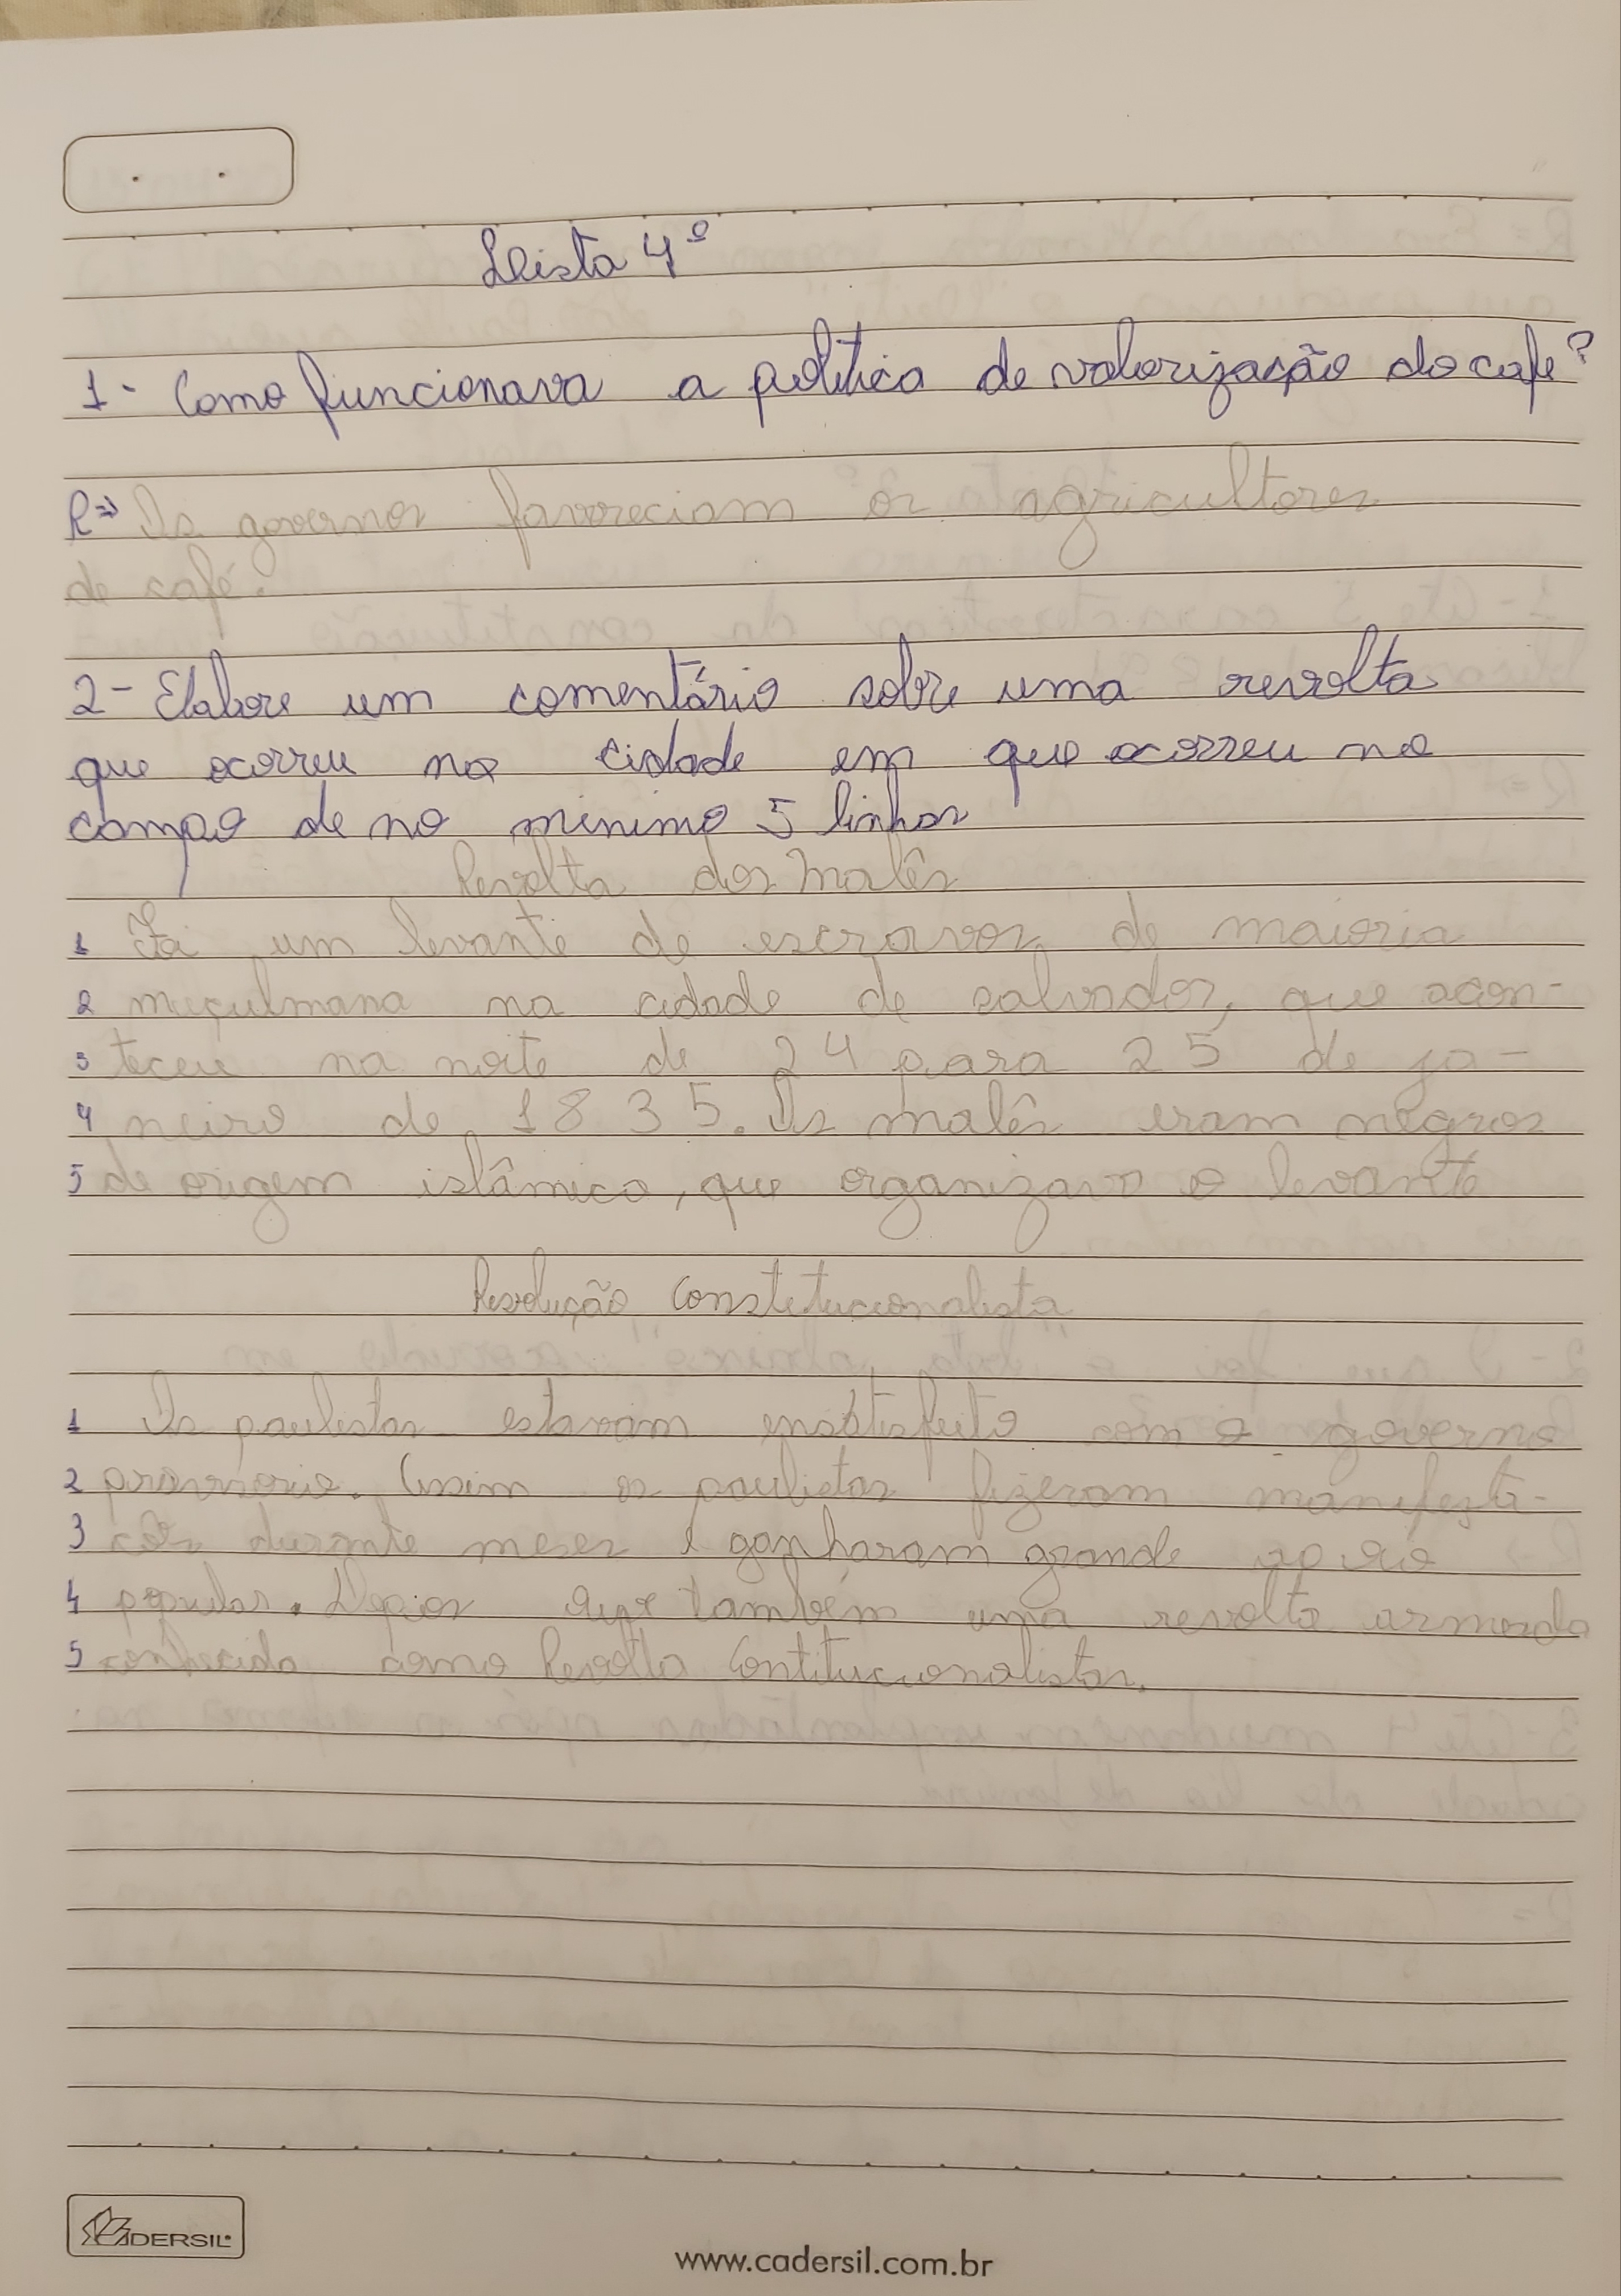 Lista 4º
1- Como funcionava a política de valorização do cafe?
R=> Os governos favoreciam os agricultores
de café.
2- Elabore um comentário sobre uma revolta
que ocorreu na cidade em que ocorreu no
campo de no minimo 5 linhas
Revolta dos Malês
1 Foi um levante de escravos de maioria
2 muçulmana na cidade de salvador, que acon-
3 teceu na noite de 24 para 25 de ja-
4 neiro de 1835. Os malês eram negros
5 de origem islâmica, que organizava o levante
Revolução Constetucionalista
1 Os paulistas estavam ensatisfeito com o governo
2 provisorio. Assim os paulistas fizeram manifesta-
3 ções durante meses e ganharam grande apoio
4 popular. Depois também uma revolta armada
5 conhecida como Revolta Contitucionalistas.
CADERSIL
www.cadersil.com.br